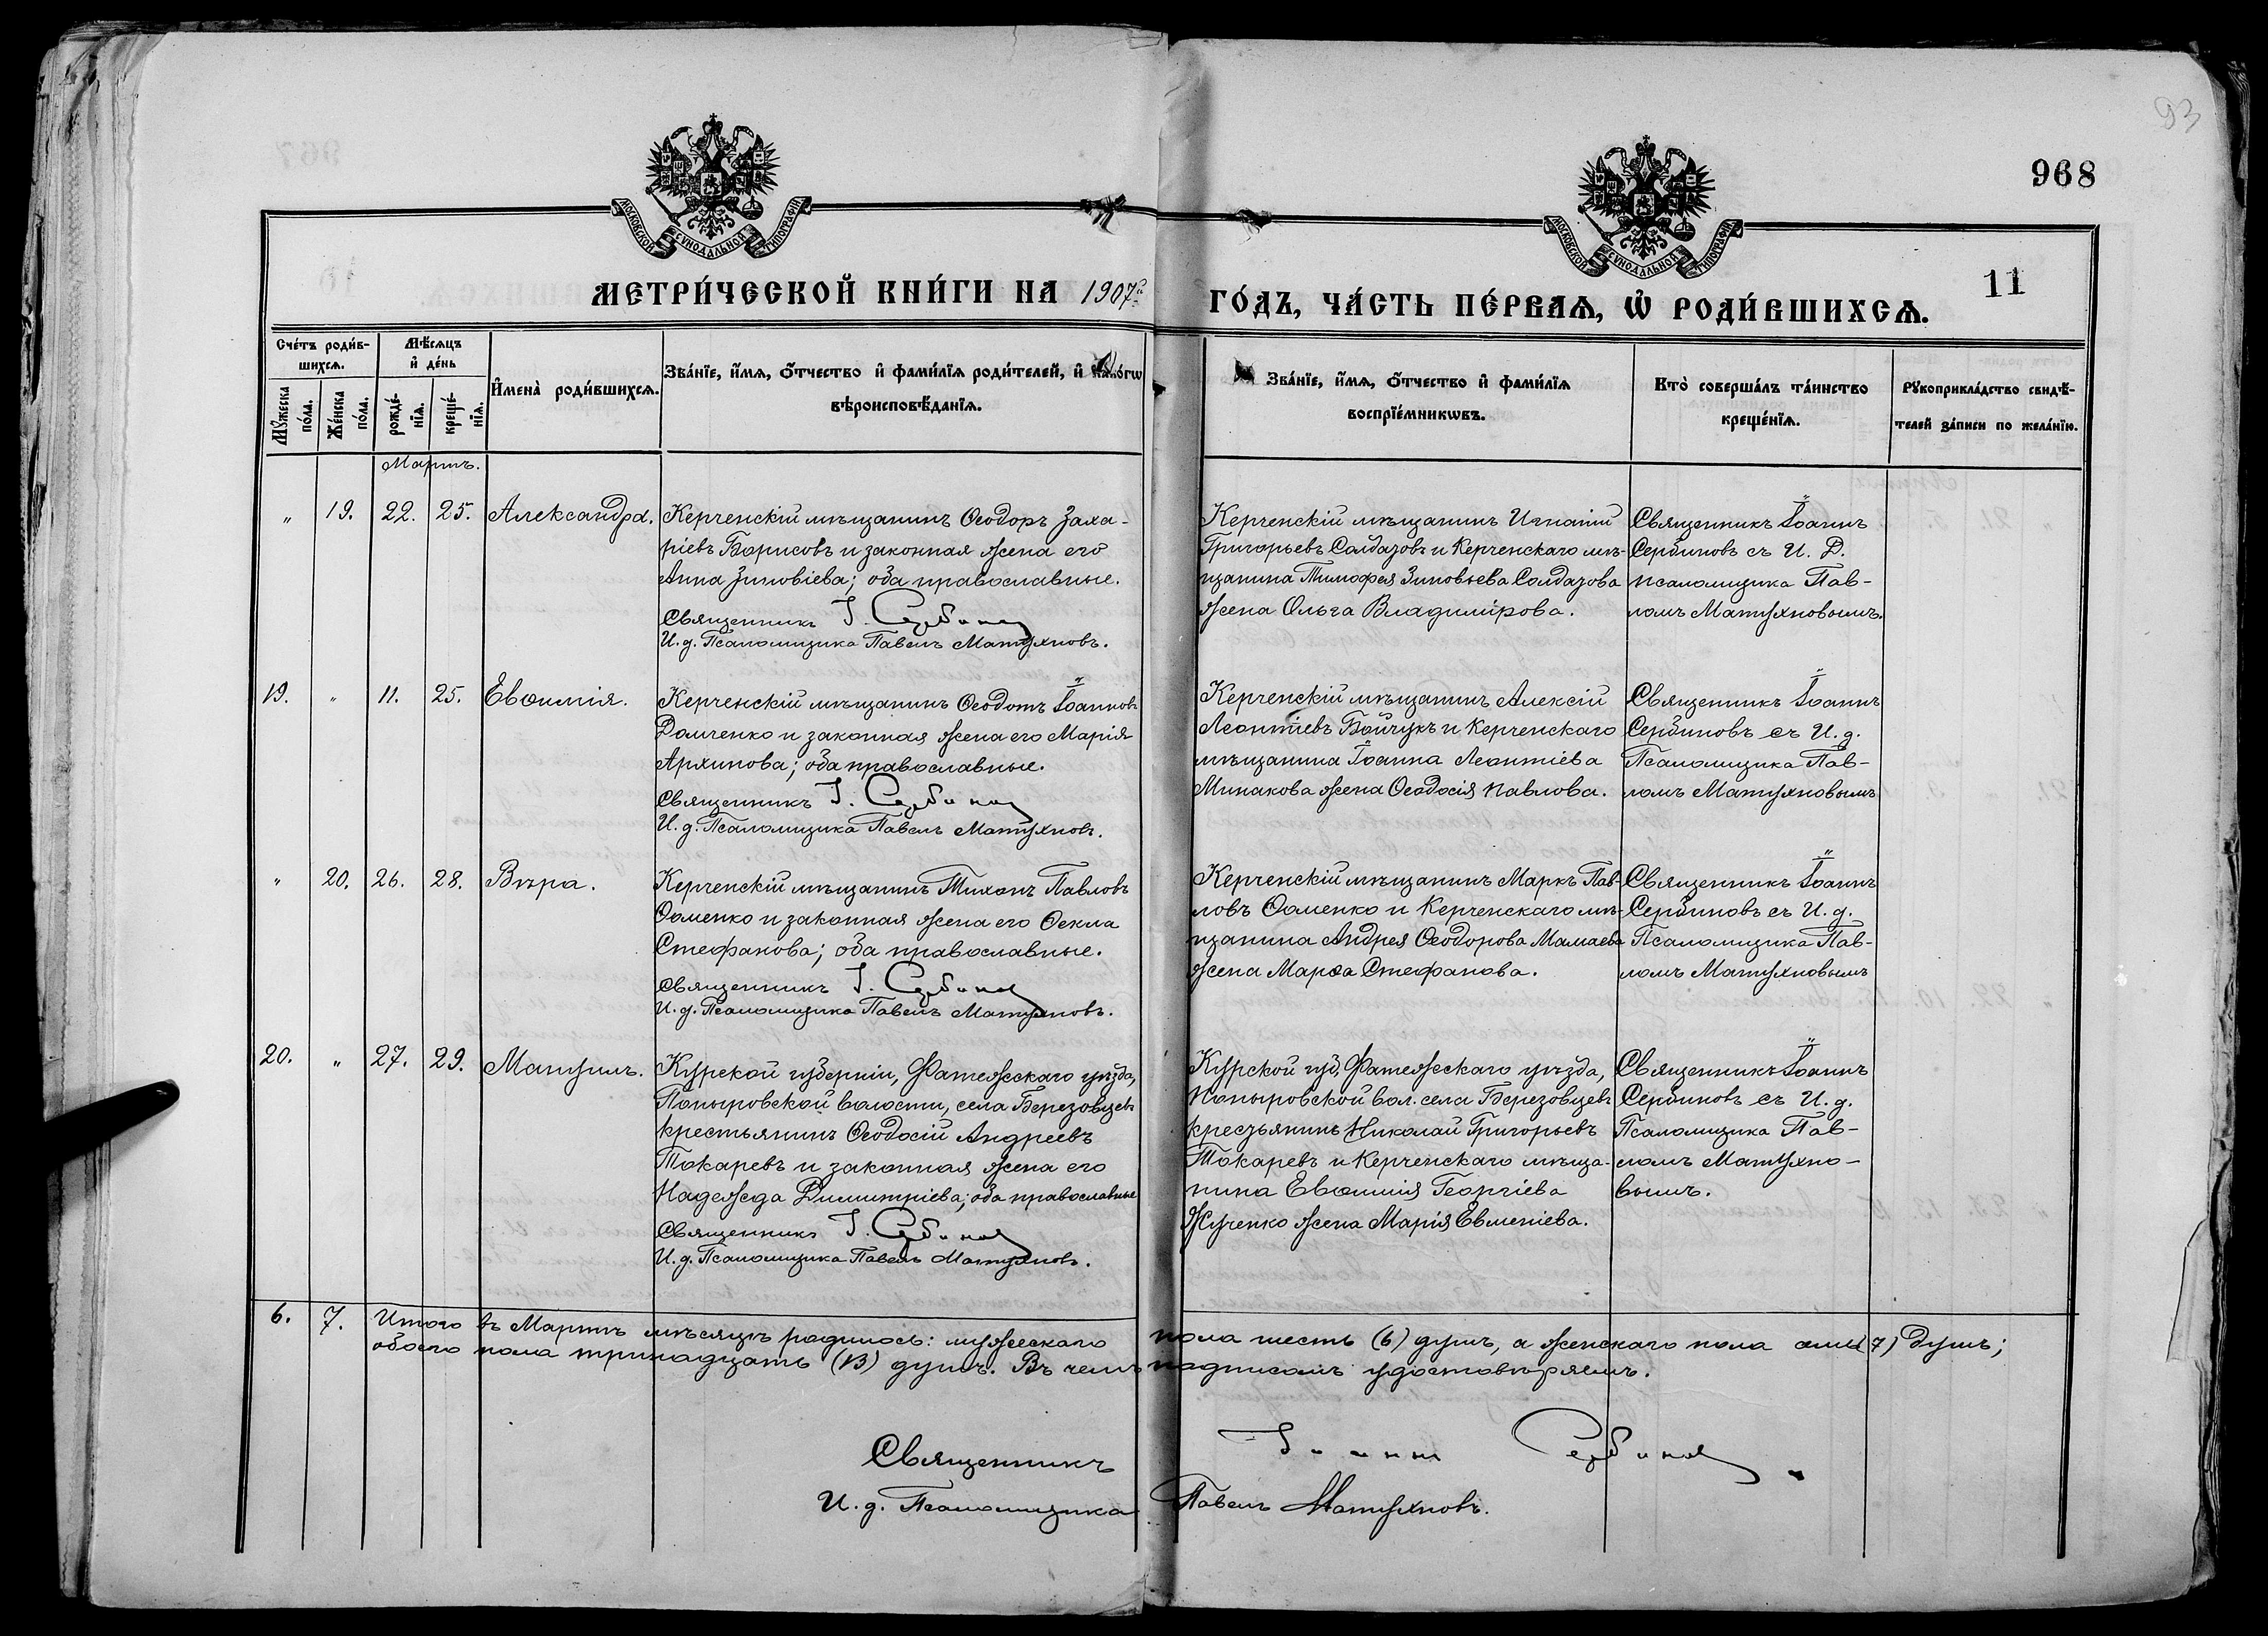 93
968
11
МОСКОВСКОЙ СѴНОДАЛЬНОЙ ТИПОГРАФІИ
МОСКОВСКОЙ СѴНОДАЛЬНОЙ ТИПОГРАФІИ
МЕТРИ́ЧЕСКОЙ КНИ́ГИ НА 1907й ГО́ДЪ, ЧА́СТЬ ПЕ́РВАѦ, Ѽ РОДИ́ВШИХСѦ.
Сче́тъ роди́в-
шихсѧ.
Мꙋ́жеска по́ла.
Же́нска по́ла.
Мѣ́сѧцъ
и҆ де́нь
рожде́-
нїѧ.
креще́-
нїѧ.
И҆мена̀ роди́вшихсѧ.
Зва́нїе, и҆́мѧ, ѻ҆́тчество и҆ фами́лїѧ роди́телей, и҆ како́гѡ
вѣроисповѣ́данїѧ.
Зва́нїе, и҆́мѧ, ѻ҆́тчество и҆ фами́лїѧ
воспрїе́мникѡвъ.
Кто̀ соверша́лъ та́инство
креще́нїѧ.
Рꙋкоприкла́дство свидѣ́-
телей за́писи по жела́нїю.
Мартъ.
" 19. 22. 25. Александра.
Керченскій мѣщанинъ Ѳеодоръ Заха-
ріевъ Борисовъ и законная жена его
Анна Зиновіева; оба православные.
Священникъ І. Сербиновъ
И. д. Псаломщика Павелъ Матухновъ.
Керченскій мѣщанинъ Игнатій
Григорьевъ Солдатовъ и Керченскаго мѣ-
щанина Тимофея Зиновьева Солдатова
жена Ольга Владимірова.
Священникъ Іоаннъ
Сербиновъ съ И. Д.
псаломщика Пав-
ломъ Матухновымъ.
19. " 11. 25. Евѳимія.
Керченскій мѣщанинъ Ѳеодотъ Іоанновъ
Домченко и законная жена его Марія
Архипова; оба православные.
Священникъ І. Сербиновъ
И. д. Псаломщика Павелъ Матухновъ.
Керченскій мѣщанинъ Алексій
Леонтіевъ Бойчукъ и Керченскаго
мѣщанина Іоанна Леонтіева
Минакова жена Ѳеодосія Павлова.
Священникъ Іоаннъ
Сербиновъ съ И. д.
Псаломщика Пав-
ломъ Матухновымъ
" 20. 26. 28. Вѣра.
Керченскій мѣщанинъ Тихонъ Павловъ
Ѳоменко и законная жена его Ѳекла
Стефанова; оба православные.
Священникъ І. Сербиновъ
И. д. Псаломщика Павелъ Матухновъ.
Керченскій мѣщанинъ Маркъ Пав-
ловъ Ѳоменко и Керченскаго мѣ-
щанина Андрея Ѳеодорова Мамаева
жена Марѳа Стефанова.
Священникъ Іоаннъ
Сербиновъ съ И. д.
Псаломщика Пав-
ломъ Матухновымъ
20. " 27. 29. Матушъ.
Курской губерніи, Фатежскаго уѣзда,
Поныровской волости, села Березовцевъ
крестьянинъ Ѳеодосій Андреевъ
Токаревъ и законная жена его
Надежда Димитріева; оба православные
Священникъ І. Сербиновъ
И. д. Псаломщика Павелъ Матухновъ.
Курской губ, Фатежскаго уѣзда,
Поныровской вол. села Березовцевъ
крестьянинъ Николай Григорьевъ
Токаревъ и Керченскаго мѣща-
нина Евѳимія Георгіева
Жученко жена Марія Евменіева.
Священникъ Іоаннъ
Сербиновъ съ И. д.
Псаломщика Пав-
ломъ Матухно-
вымъ.
6. 7. Итого въ Мартѣ мѣсяцѣ родилось: мужескаго пола шесть (6) душъ, а женскаго пола семь (7) душъ;
обоего пола тринадцать (13) душъ. Въ чемъ подписомъ удостовѣряемъ.
Священникъ Іоаннъ Сербиновъ.
И. д. Псаломщика Павелъ Матухновъ.